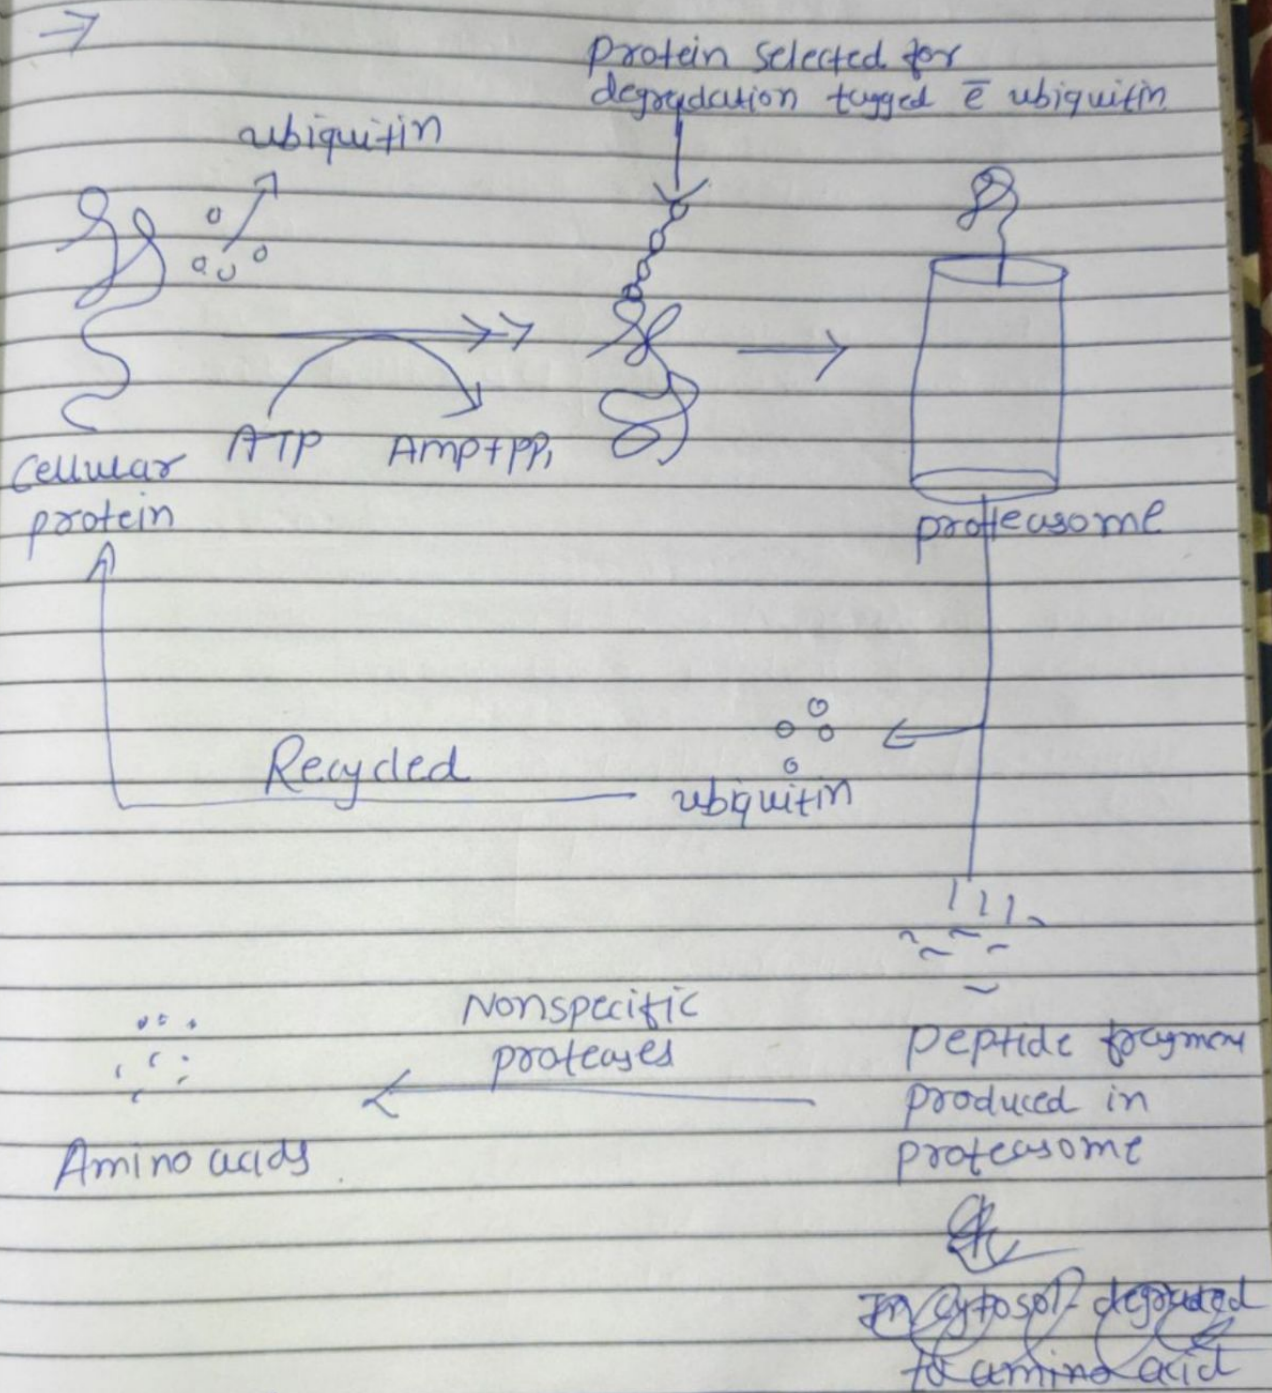 Protein selected for
degradation tagged c̄ ubiquitin
ubiquitin
ATP
AMP+PPi
Cellular
protein
proteasome
Recycled
ubiquitin
Nonspecific
proteases
peptide fragment
produced in
proteasome
Amino acids
In cytosol degraded
to amino acid